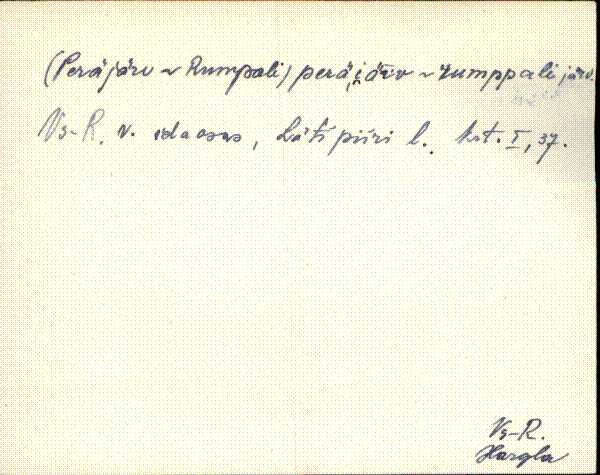 (Peräjärv ~ Rumpali) peräjärv ~ rumppali järv.
Vs-R. v. idaosas, Läti piiri l. krt. I, 37.
Vs-R.
Hargla